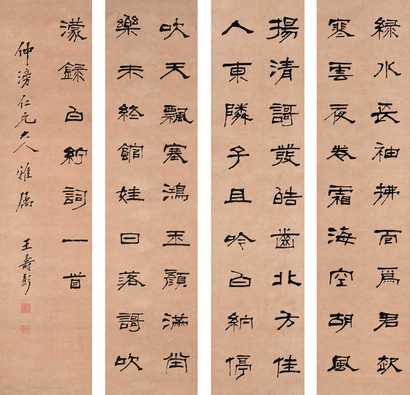 緑水長袖拂面爲君起
寒雲夜卷霜海空胡風
揚清謌發皓齒北方佳
人東隣子且吟白紵停
吹天飄塞鴻玉顔滿堂
樂未終館娃日落謌吹
濛録白紵詞一首
仲滂仁元大人雅屬
王壽彭